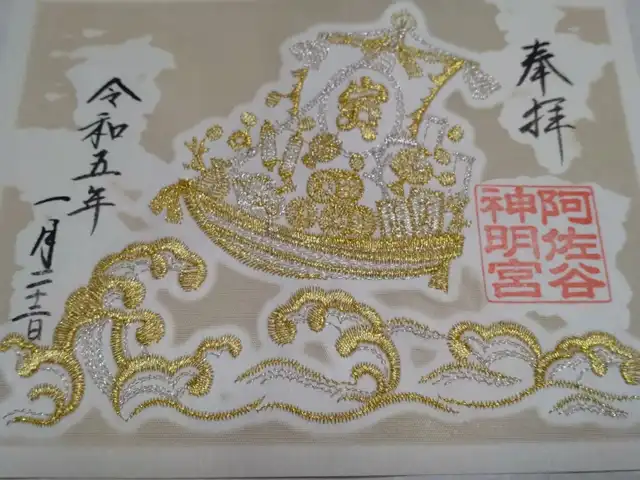 奉拝
阿佐谷
神明宮
令和五年
一月二十二日